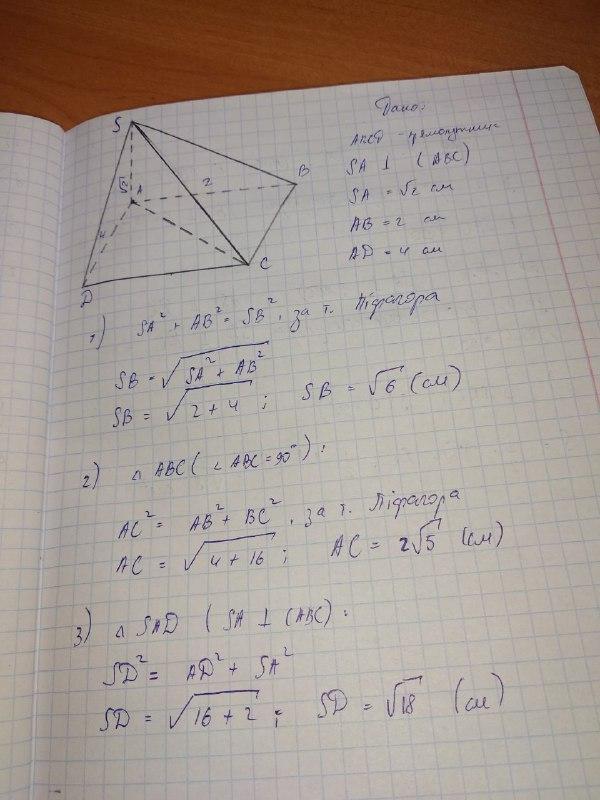 S
B
A
2
√2
4
C
D
Дано:
ABCD - прямокутник
SA ⊥ (ABC)
SA = √2 см
AB = 2 см
AD = 4 см
1) SA² + AB² = SB², за т. Піфагора
SB = √SA² + AB²
SB = √2 + 4 ; SB = √6 (см)
2) △ ABC (∠ ABC = 90°) :
AC² = AB² + BC², за т. Піфагора
AC = √4 + 16 ; AC = 2√5 (см)
3) △ SAD (SA ⊥ (ABC) :
SD² = AD² + SA²
SD = √16 + 2 ; SD = √18 (см)